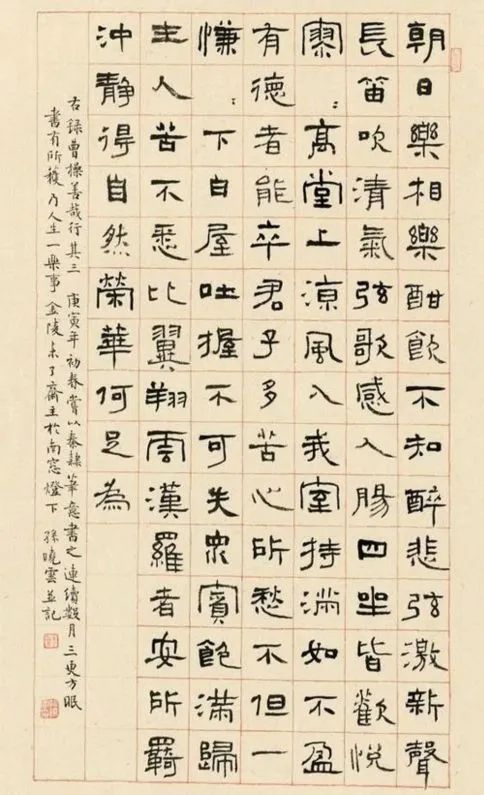 朝日樂相樂酣飲不知醉悲弦激新聲
長笛吹清氣弦歌感人腸四坐皆歡悅
寥：高堂上涼風入我室持滿如不盈
有德者能卒君子多苦心所愁不但一
慊：下白屋吐握不可失眾賓飽滿歸
主人苦不悉比翼翔雲漢羅者安所羈
沖靜得自然榮華何足為
右錄曹操善哉行其三 庚寅年初春嘗以秦隸筆意書之連續數月三更方眠
書有所獲乃人生一樂事金陵未了齋主於南窓燈下 孫曉雲並記